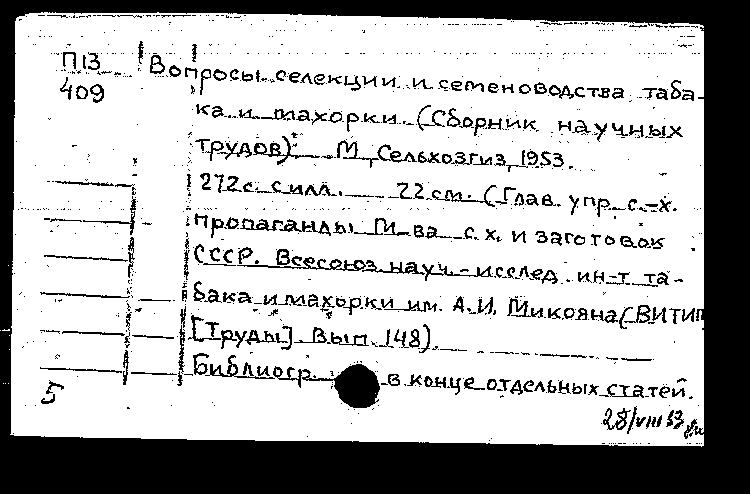 П13 Вопросы селекции и семеноводства таба-
409 ка и махорки. (Сборник научных
трудов). М., Сельхозгиз, 1953.
272 с. с илл. 22 см. (Глав. упр. с.-х.
пропаганды М-ва с. х. и заготовок
СССР. Всесоюз. науч.-исслед. ин-т та-
бака и махорки им. А. И. Микояна (ВИТИМ
[Труды]. Вып. 148).
Библиогр. в конце отдельных статей.
5
28/VIII 53